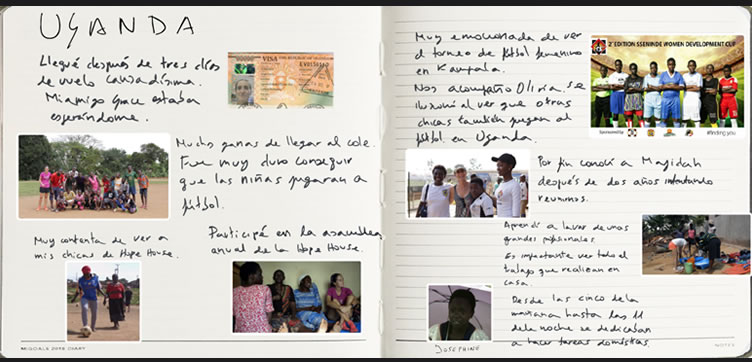 UGANDA
Llegué después de tres días
de vuelo cansadísima.
Mi amigo Grace estaba
esperándome.
VISA
Muchas ganas de llegar al cole.
Fue muy duro conseguir
que las niñas jugaran a
fútbol.
Muy contenta de ver a
mis chicas de Hope House.
Participé en la asamblea
anual de la Hope House.
MIGOALS 2016 DIARY
Muy emocionada de ver
el torneo de fútbol femenino
en Kampala.
Nos acompañó Olivia, se
ilusionó al ver que otras
chicas también juegan al
fútbol en Uganda.
2nd EDITION SSENINDE WOMEN DEVELOPMENT CUP
#finding you
Por fin conocí a Majidah
después de dos años intentando
reunirnos.
Aprendí a lavar de unas
grandes profesionales.
Es importante ver todo el
trabajo que realizan en
casa.
Desde las cinco de la
mañana hasta las 11
de la noche se dedicaban
a hacer tareas domésticas.
JOSEPHINE
NOTES